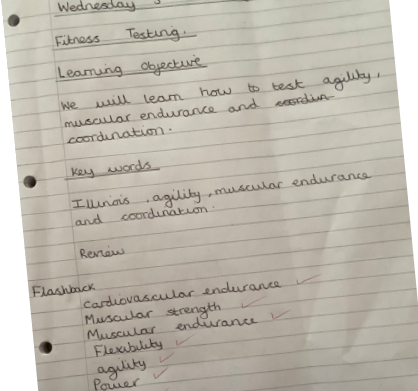 Wednesday
Fitness Testing.
Learning Objective
We will learn how to test agility,
muscular endurance and coordin
coordination.
Key words
Illinois, agility, muscular endurance
and coordination.
Review
Flashback
Cardiovascular endurance
Muscular strength
Muscular endurance
Flexibility
agility
Power